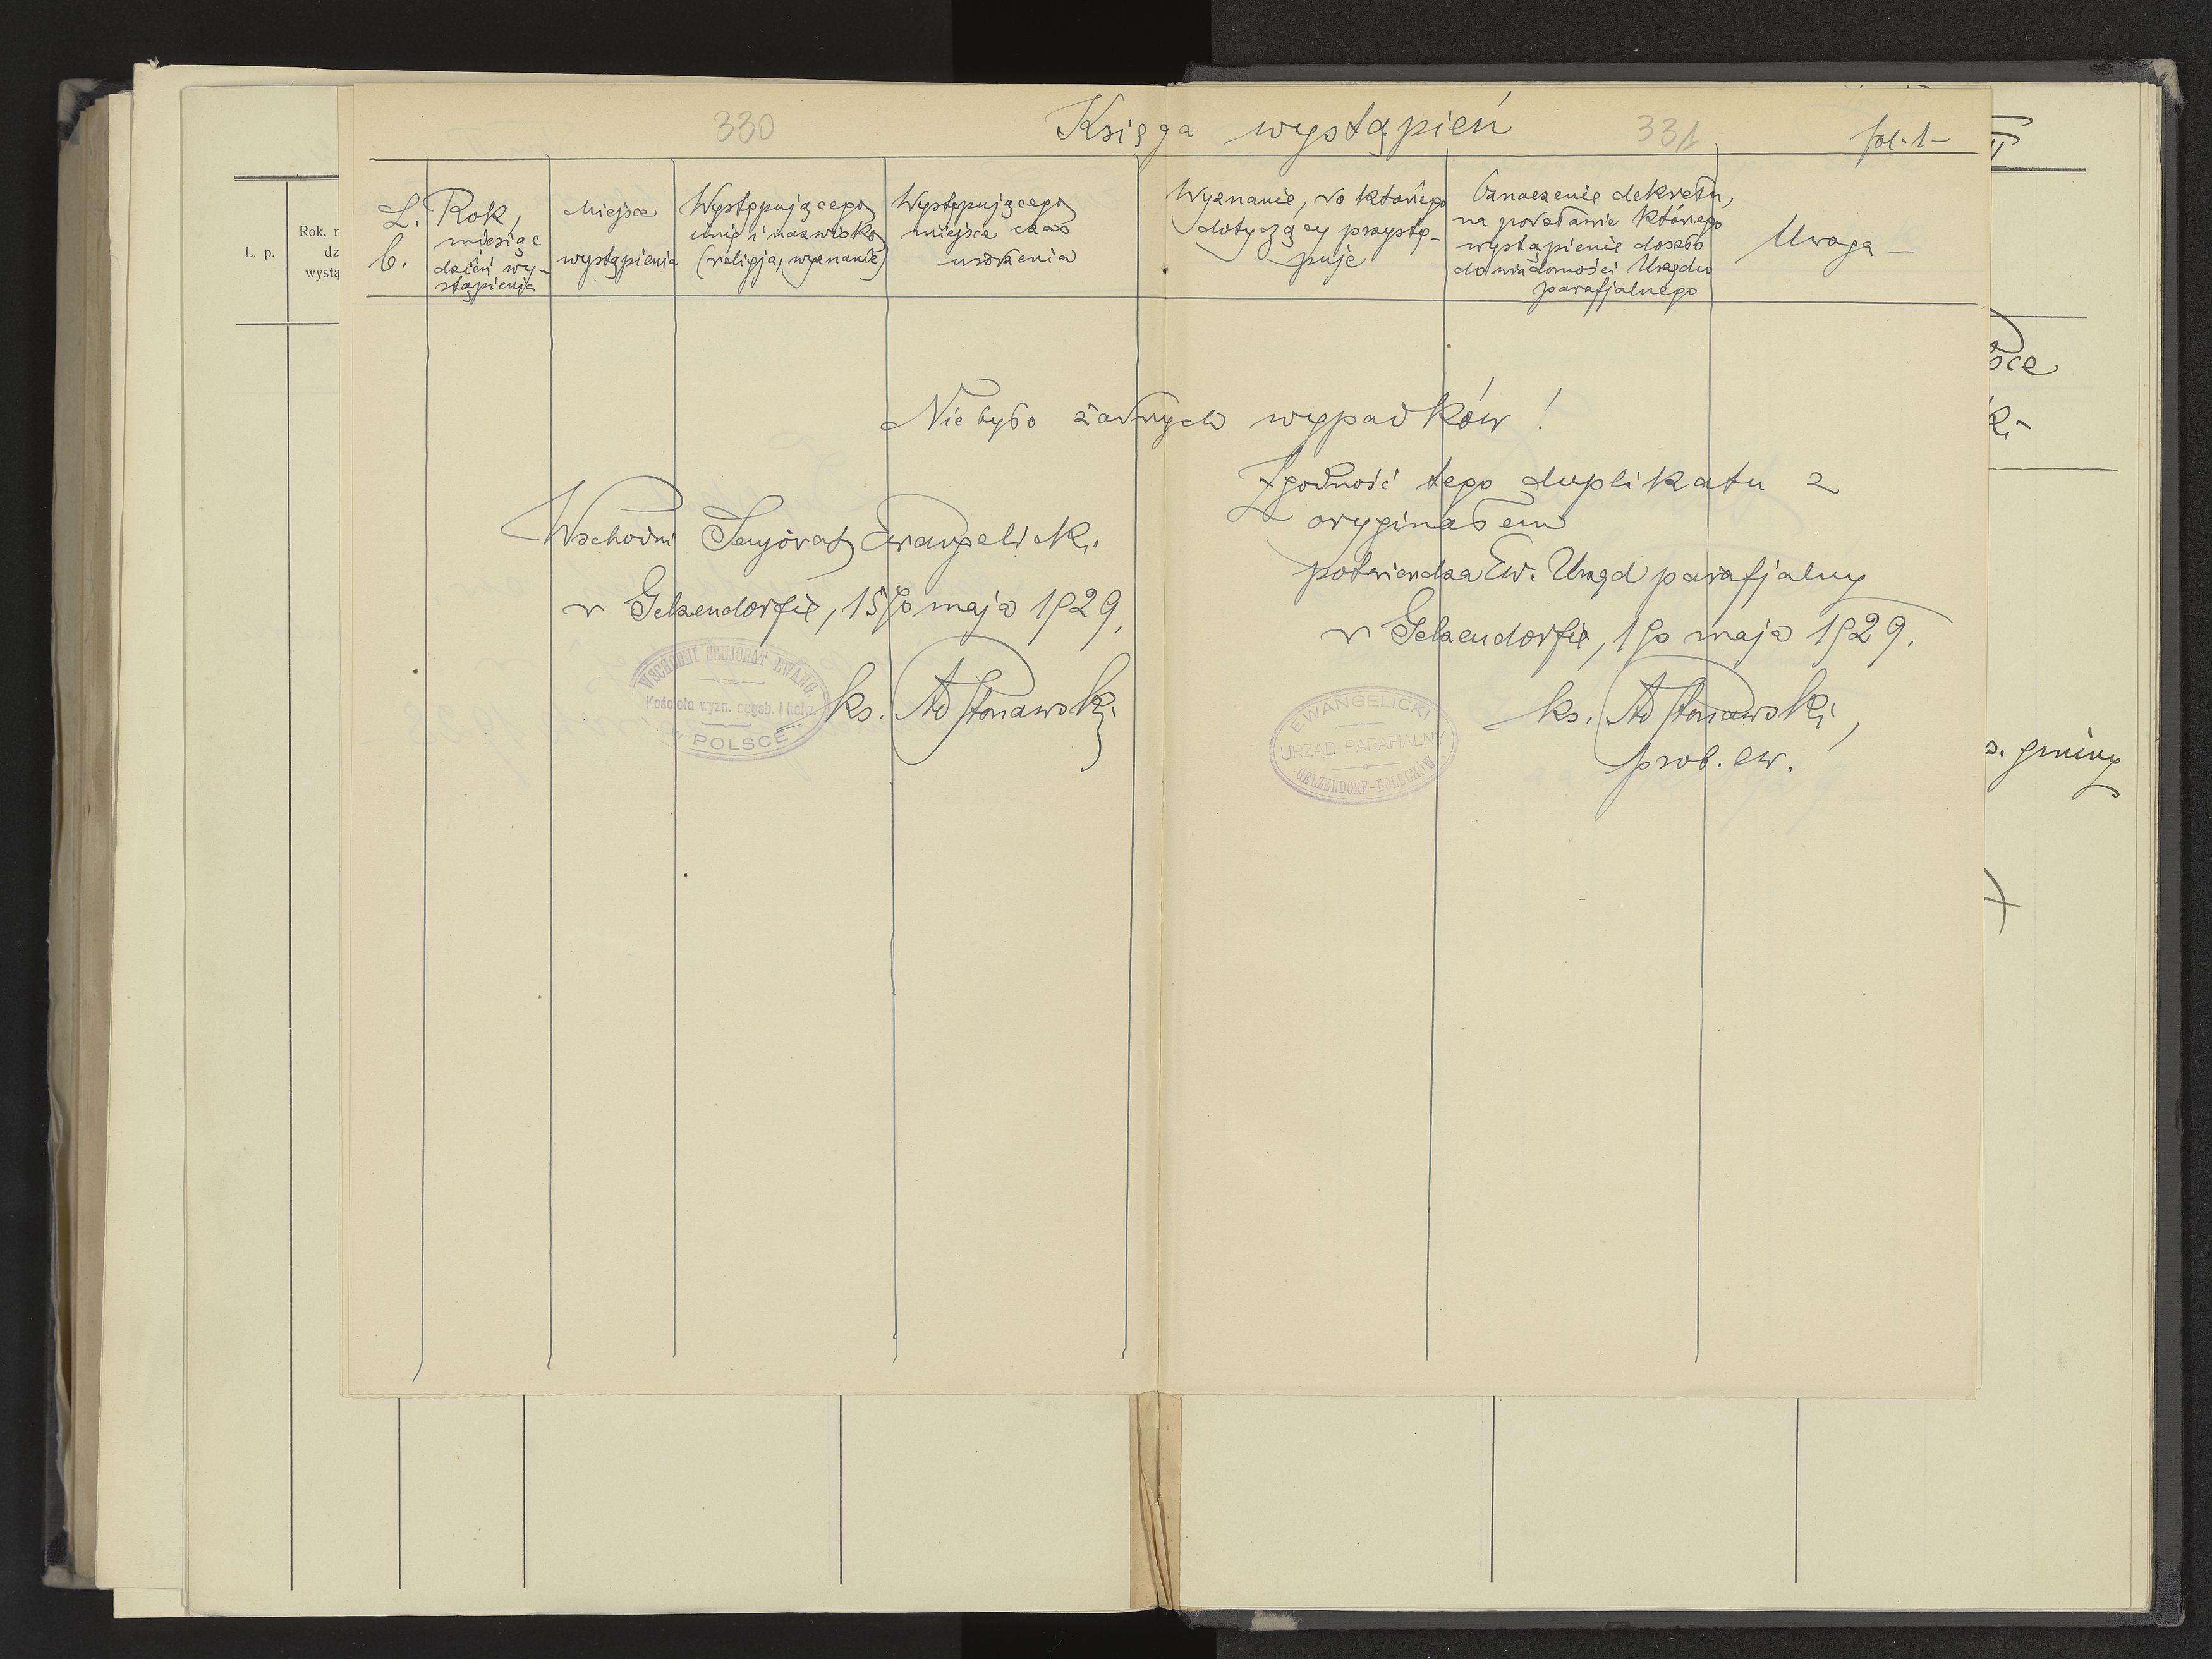 330
Księga wystąpień
331
fol. 1-
L. b.
Rok,
miesiąc
i
dzień wy-
stąpienia
Miejsce
wystąpienia
Występującego
imię i nazwisko
(religja, wyznanie)
Występującego
miejsce czas
urodzenia
Wyznanie, do którego
dotyczący przystę-
puje
Oznaczenie dekretu,
na podstawie którego
wystąpienie doszło
do wiadomości Urzędu
parafjalnego
Uwaga
Nie było żadnych wypadków!
Wschodni Senjorat Ewangelicki
w Gelsendorfie, 15go maja 1929.
ks.
WSCHODNI SENJORAT EWANG.
Kościoła wyzn. augsb. i helw.
w POLSCE
Zgodność tego duplikatu z
oryginałem
potwierdza Ew. Urząd parafjalny
w Gelsendorfie, 1go maja 1929.
ks.
prob. ew.
EWANGELICKI
URZĄD PARAFIALNY
GELZENDORF-BOLECHÓW
L. p.
Rok,
wystą
sce
ki
gminy